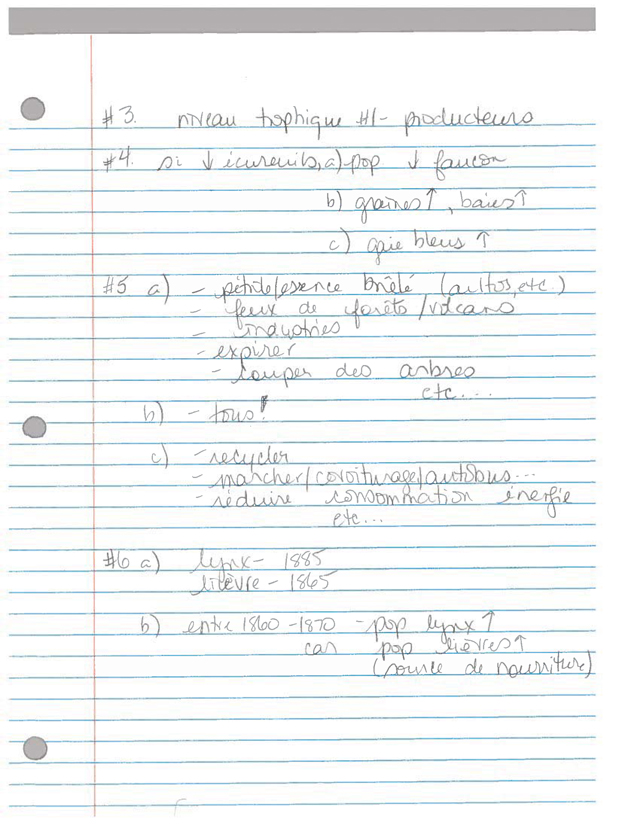 #3. niveau trophique #1- producteurs
#4. si ↓ écureuils, a) pop ↓ faucon
b) graines↑, baies↑
c) gaie bleus ↑
#5 a) - pétrole/essence brûlé (autos, etc.)
- feux de forêts/volcano
- industries
- expirer
- couper des arbres
etc....
b) - tous!
c) - recycler
- marcher/covoiturage/autobus...
- réduire consommation énergie
etc...
#6 a) lynx- 1885
lièvre - 1865
b) entre 1860-1870 - pop lynx↑
car pop lièvres↑
(source de nourriture)